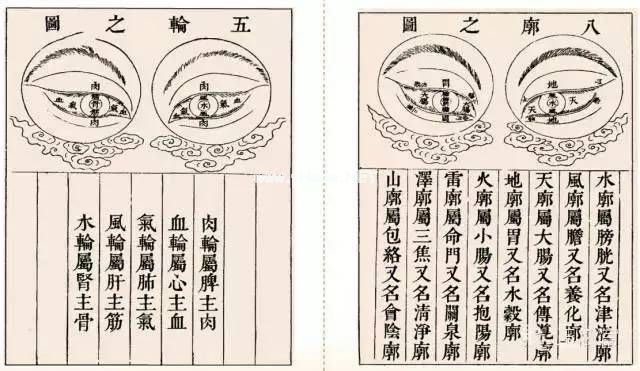 八廓之圖
地
天
水
天
地
水廓屬膀胱又名津液廓
風廓屬膽又名養化廓
天廓屬大腸又名傳導廓
地廓屬胃又名水穀廓
火廓屬小腸又名抱陽廓
雷廓屬命門又名關泉廓
澤廓屬三焦又名清淨廓
山廓屬包絡又名會陰廓
五輪之圖
肉
血
氣
風
水
氣
血
肉
肉
血
氣
氣
血
肉
肉輪屬脾主肉
血輪屬心主血
氣輪屬肺主氣
風輪屬肝主筋
水輪屬腎主骨